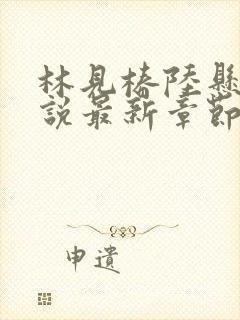 林見椿陸懸
說最新章節
申遺